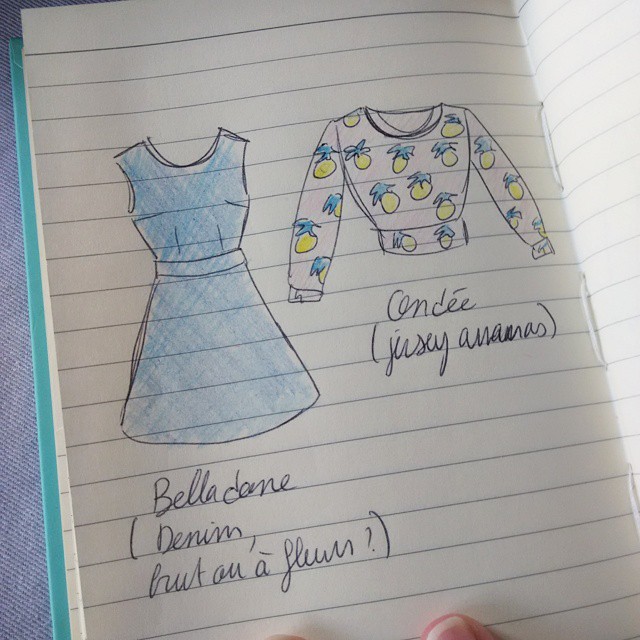 Ondée
(jersey ananas)
Belladone
(Denim,
brut ou à fleurs ?)